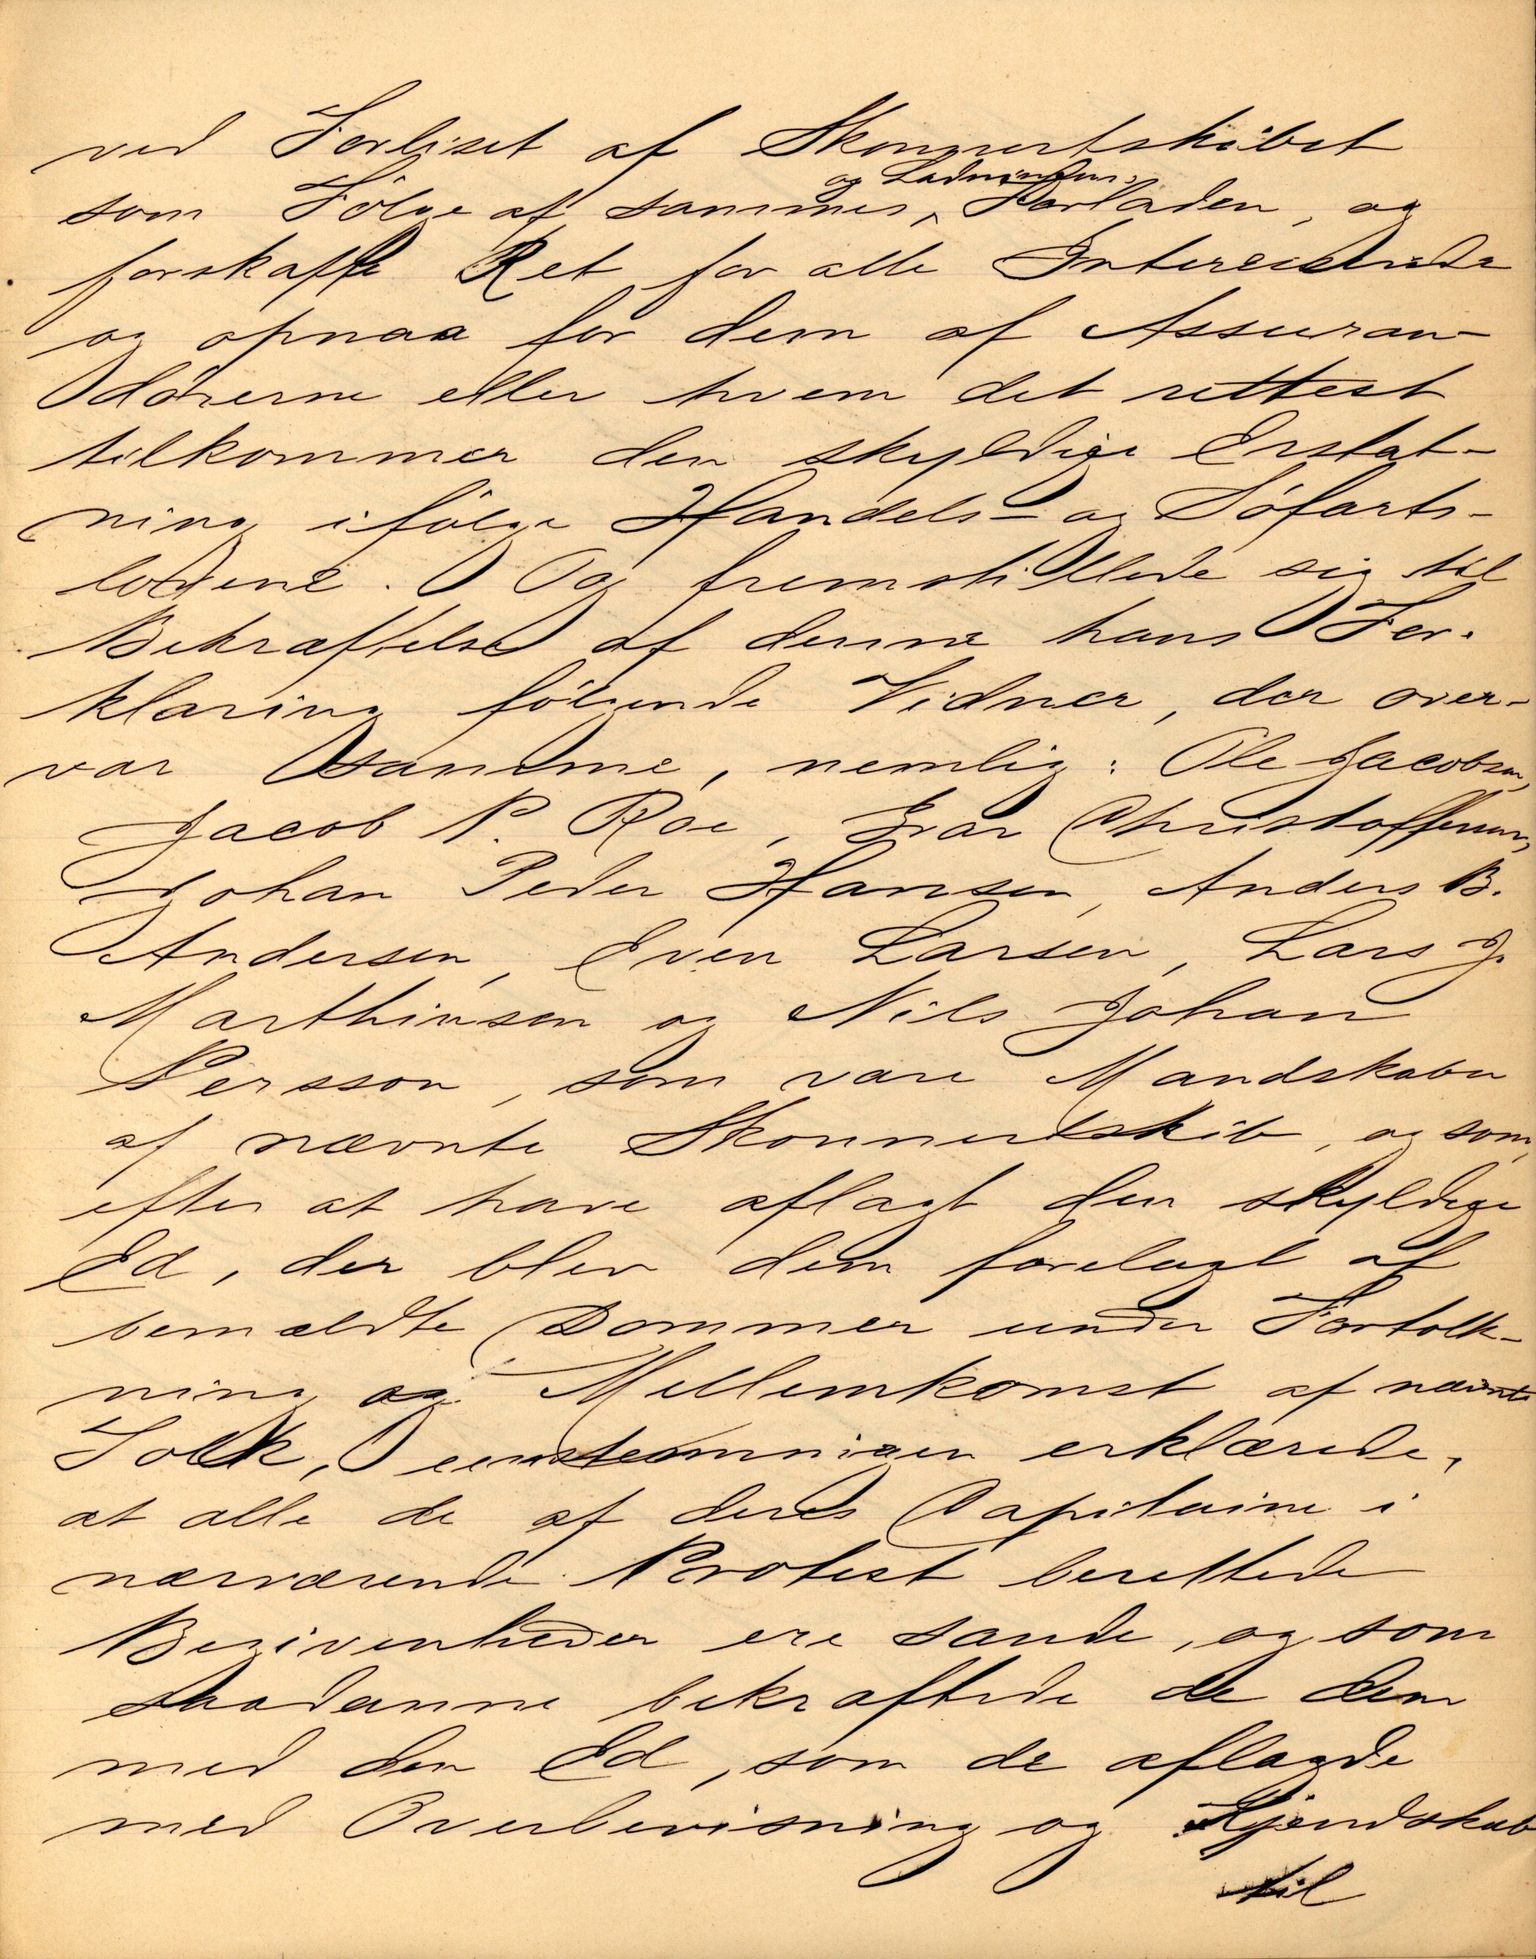 ved Forliset af Skonnertskibet
og Ladningens
som Fölge af sammes, Forladen, og
forskaffe Ret for alle Interesserede
og opnaa for dem af Assuran-
dörerne eller hvem det rettest
tilkommer den skyldige Erstat-
ning ifölge Handels- og Söfarts-
lovene. Og fremstillede sig til
Bekræftelse af denne hans For-
klaring fölgende Vidner, der over-
var samme, nemlig: Ole Jacobsen,
Jacob P. Roe, Ivar Christoffersen,
Johan Peder Hansen, Anders B.
Andersen, Even Larsen, Lars J.
Marthinsen og Nils Johan
Persson, som vare Mandskaber
af nævnte Skonnertskib, og som,
efter at have aflagt den skyldige
Ed, der blev dem forelagt af
bemældte Dommer under Fortolk-
ning og Mellemkomst af nævnte
Tolk, eenstemmigen erklærede,
at alle de af deres Capitaine i
nærværende Protest berettede
Begivenheder ere sande, og som
saadanne bekræftede de dem
med den Ed, som de aflagde
med Overbevisning og Kjendskab
til